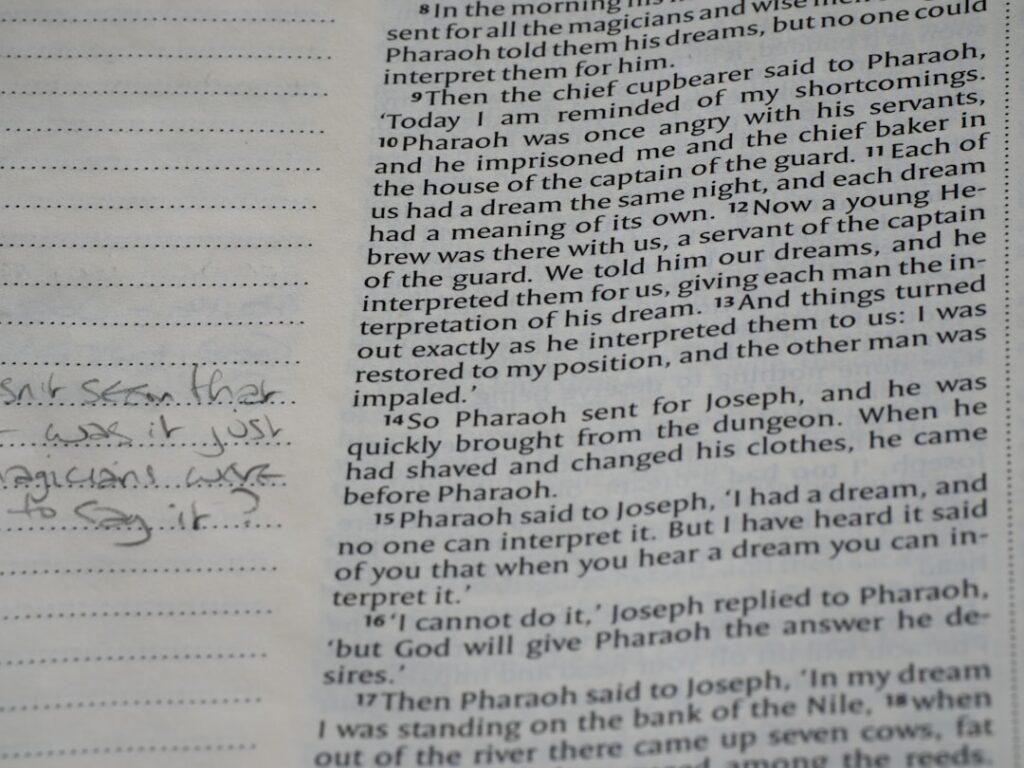 8 In the morning his
sent for all the magicians and wise men
Pharaoh told them his dreams, but no one could
interpret them for him.
9 Then the chief cupbearer said to Pharaoh,
‘Today I am reminded of my shortcomings.
10 Pharaoh was once angry with his servants,
and he imprisoned me and the chief baker in
the house of the captain of the guard. 11 Each of
us had a dream the same night, and each dream
had a meaning of its own. 12 Now a young He-
brew was there with us, a servant of the captain
of the guard. We told him our dreams, and he
interpreted them for us, giving each man the in-
terpretation of his dream. 13 And things turned
out exactly as he interpreted them to us: I was
restored to my position, and the other man was
impaled.’
14 So Pharaoh sent for Joseph, and he was
quickly brought from the dungeon. When he
had shaved and changed his clothes, he came
before Pharaoh.
15 Pharaoh said to Joseph, ‘I had a dream, and
no one can interpret it. But I have heard it said
of you that when you hear a dream you can in-
terpret it.’
16 ‘I cannot do it,’ Joseph replied to Pharaoh,
‘but God will give Pharaoh the answer he de-
sires.’
17 Then Pharaoh said to Joseph, ‘In my dream
I was standing on the bank of the Nile, 18 when
out of the river there came up seven cows, fat
among the reeds.
sn't seem that
was it just
agicians were
to say it?